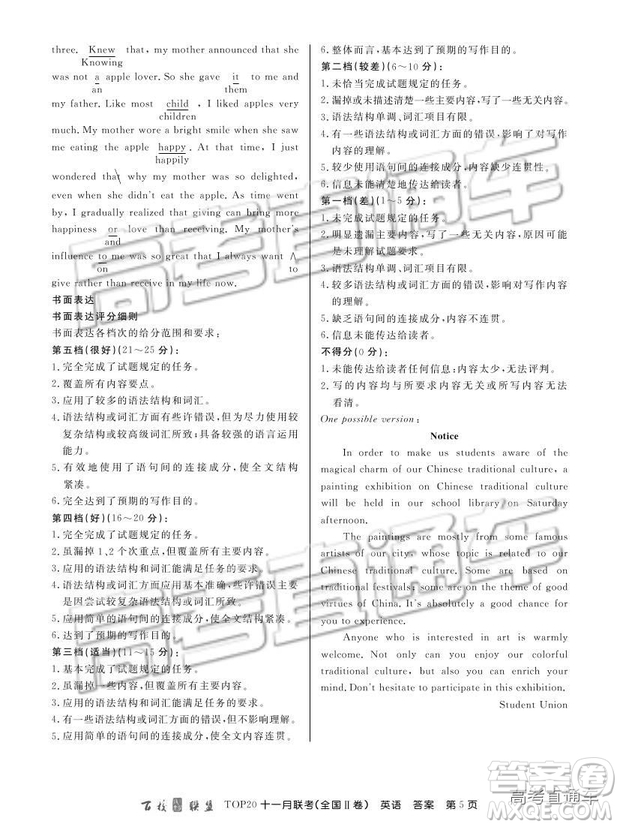 three. Knew that, my mother announced that she
Knowing
was not a apple lover. So she gave it to me and
an them
my father. Like most child, I love eating apples very
children
much. My mother wore a bright smile when she saw
me eating the apple happy. At that time, I just
happily
wondered that why my mother was so delighted,
even when she didn't eat the apple. As time went
by, I gradually realized that giving can bring more
happiness or love than receiving. My mother's
and
influence to me was so great that I always want Λ
on to
give rather than receive in my life now.
书面表达
书面表达评分细则
书面表达各档次的给分范围和要求:
第五档(很好)(21~25分):
1. 完全完成了试题规定的任务。
2. 覆盖所有要点。
3. 应用了较多的语法结构和词汇。
4. 语法结构或词汇方面有些许错误,但为尽力使用较
复杂结构或较高级词汇所致;具备较强的语言运用
能力。
5. 有效地使用了语句间的连接成分,使全文结构
紧凑。
6. 完全达到了预期的写作目的。
第四档(好)(16~20分):
1. 完全完成了试题规定的任务。
2. 虽漏掉1、2个次重点,但覆盖所有主要内容。
3. 应用的语法结构和词汇能满足任务的要求。
4. 语法结构或词汇方面应用基本准确,些许错误主要
是因尝试较复杂语法结构或词汇所致。
5. 应用简单的语句间的连接成分,使全文结构紧凑。
6. 达到了预期的写作目的。
第三档(适当)(11~15分):
1. 基本完成了试题规定的任务。
2. 虽漏掉一些内容,但覆盖所有主要内容。
3. 应用的语法结构和词汇能满足任务的要求。
4. 有一些语法结构或词汇方面的错误,但不影响理解。
5. 应用简单的语句间的连接成分,使全文内容连贯。
6. 整体而言,基本达到了预期的写作目的。
第二档(较差)(6~10分):
1. 未恰当完成试题规定的任务。
2. 漏掉或未描述清楚一些主要内容。
3. 语法结构单调、词汇项目有限。
4. 有一些语法结构或词汇方面的错误,影响了对写作
内容的理解。
5. 较少使用语句间的连接成分,内容缺少连贯性。
6. 信息未能清楚地传达给读者。
第一档(差)(1~5分):
1. 未完成试题规定的任务。
2. 明显遗漏主要内容,写了一些无关内容,原因可能
是未理解试题要求。
3. 语法结构单调、词汇项目有限。
4. 较多语法结构或词汇方面的错误,影响对写作内容
的理解。
5. 缺乏语句间的连接成分,内容不连贯。
6. 信息未能传达给读者。
不得分(0分):
1. 未能传达给读者任何信息:内容太少,无法评判。
2. 写的内容均与所要求内容无关或所写内容无法
看清。
One possible version:
Notice
In order to make us students aware of the
magical charm of our Chinese traditional culture, a
painting exhibition on Chinese traditional culture
will be held in our school library on Saturday
afternoon.
The paintings are mostly from some famous
artists of our city, whose topic is related to our
Chinese traditional culture. Some are based on
traditional festivals; some are on the theme of good
virtues of China. Absolutely it's a good chance for
us.
Anyone who is interested in art is warmly
welcome. Not only can you enjoy our colorful
traditional culture, but also it can enrich your
mind. Don't hesitate to participate in this exhibition.
Student Union
百校联盟 TOP20 十一月联考(全国Ⅱ卷) 英语 答案 第5页
高考直通车
高考直通车
高考直通车
答案圈
MXQE.COM